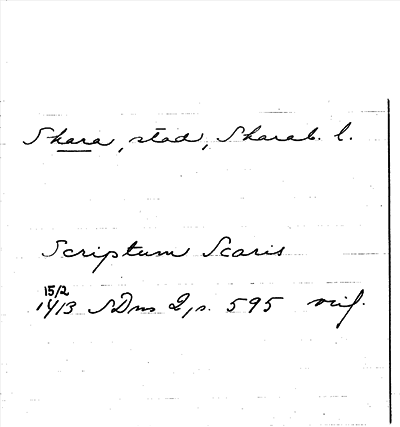 Skara, stad, Skarab. l.
Scriptum Scaris
15/2
1413 SDns 2, s. 595 orig.